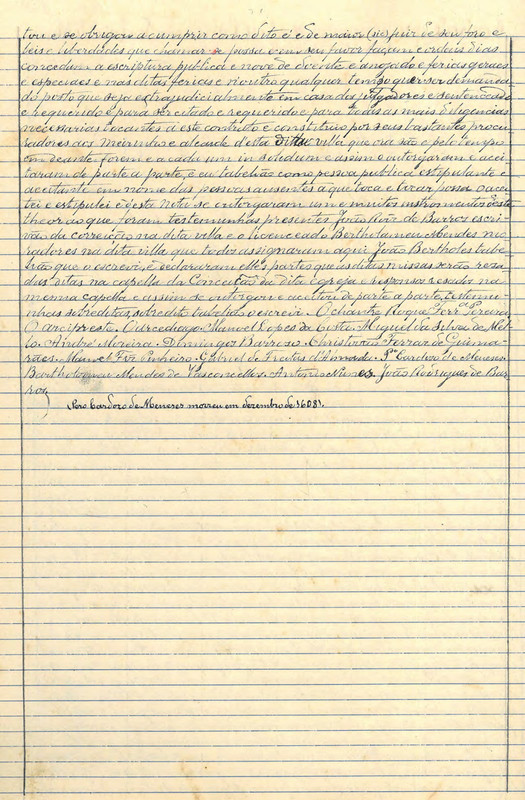 tou e se obrigou a cumprir como dito é e de maior (sic) juiz de seu foro e
leis e liberdades que chamar se possa e em seu favor façam e ordens dias
concedem a escriptura publica e nove de doente e anojado e ferias geraes
e especiaes e nas ditas ferias e noutro qualquer tempo quer ser demandado
do posto que seja extrajudicialmente em casa dos julgadores e sentenceado
e requerido e para ser citado e requerido e para todas as mais diligencias
necessarias tocantes a este contrato e constituio por seus bastantes procu-
radores aos meirinho e alcaide d'esta dita villa que ora são e pelo tempo
em deante forem e a cada um in soledum e assim o outorgaram e acei-
taram de parte a parte, e eu tabelião como pessoa publica estipulante e
aceitante em nome das pessoas ausentes a que toca e tocar possa o acei-
tei e estipulei e desta nota se outorgaram um e muitos instromentos deste
theor ao que foram testemunhas presentes João Roiz de Barros escri-
vão da correição na dita villa e o licenceado Bertholameu Mendes mo-
radores na dita villa que todos assignaram aqui João Bertholes tabe-
lião que o escrevi, e declararam elles partes que as ditas missas serão reza-
das ditas na capella da Conceição da dita egreja e responsar e sados na
mesma capella e assim se outorgou e aceitou de parte a parte, testemu-
nhas sobreditas, sobredito tabelião o escrevi. O chantre Roque Ferr.ª Pereira
O arcipreste. O arcediago Manuel Lopes da Costa. Miguel da Silva de Mel-
lo. André Moreira. Domingos Barroso. Christovam Ferraz de Guima-
rães. Manuel Frz Pinheiro. Gabriel de Freitas d'Amado. P.º Cardoso de Meneses.
Bartholomeu Mendes de Vasconcellos. Antonio Nunes. João Rodrigues de Bar-
ros.
(Pero Cardoso de Meneses morreu em dezembro de 1608).